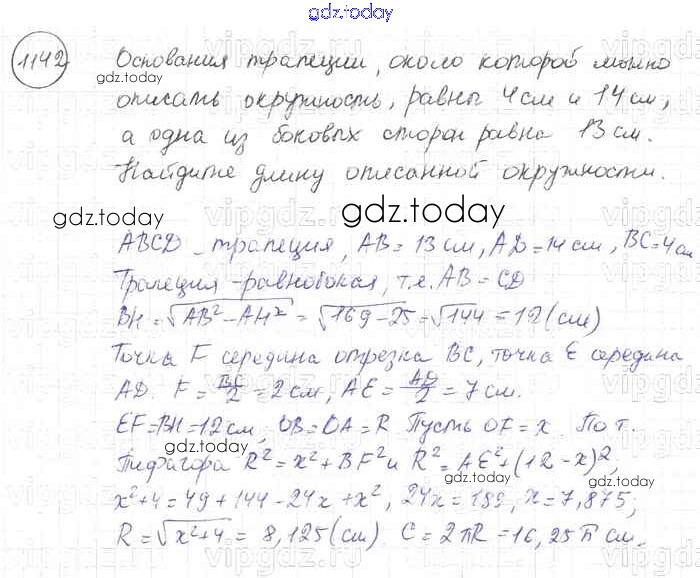 gdz.today
1142 Основания трапеции, около которой можно
gdz.today
описать окружность, равны 4 см и 14 см,
а одна из боковых сторон равна 13 см.
Найдите длину описанной окружности.
gdz.today
gdz.today
ABCD – трапеция, AB = 13 см, AD = 14 см, BC = 4 см
Трапеция – равнобокая, т.е. AB = CD
BH = √AB² – AH² = √169 – 25 = √144 = 12 (см)
Точка F середина отрезка BC, точка E середина
AD. F = BC/2 = 2 см, AE = AD/2 = 7 см.
EF = BH = 12 см, OB = OA = R. Пусть OF = x. По т.
gdz.today
Пифагора R² = x² + BF² и R² = AE² + (12 – x)²,
x² + 4 = 49 + 144 – 24x + x², 24x = 189, x = 7,875;
R = √x² + 4 = 8,125 (см). C = 2πR = 16,25π см.
gdz.today
gdz.today